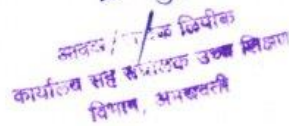 आवक / लिपीक
कार्यालय सह संचालक उच्च शिक्षण
विभाग, अमरावती